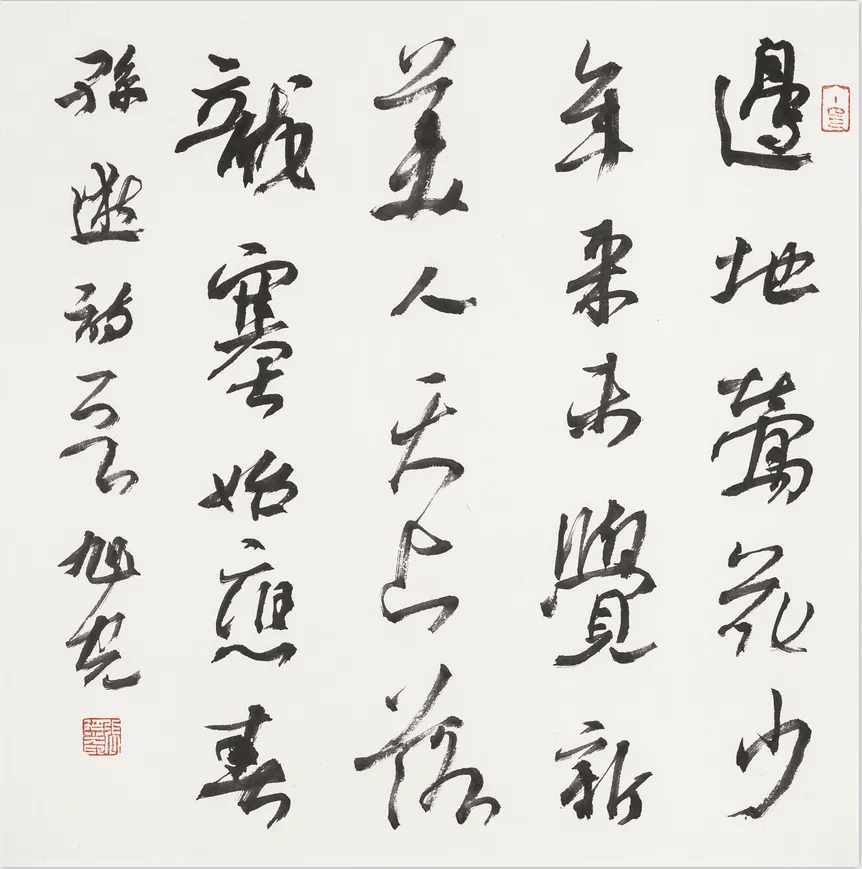 邊地鶯花少
年来未覺新
美人天上落
龍塞始應春
孫逖詩一首 旭光